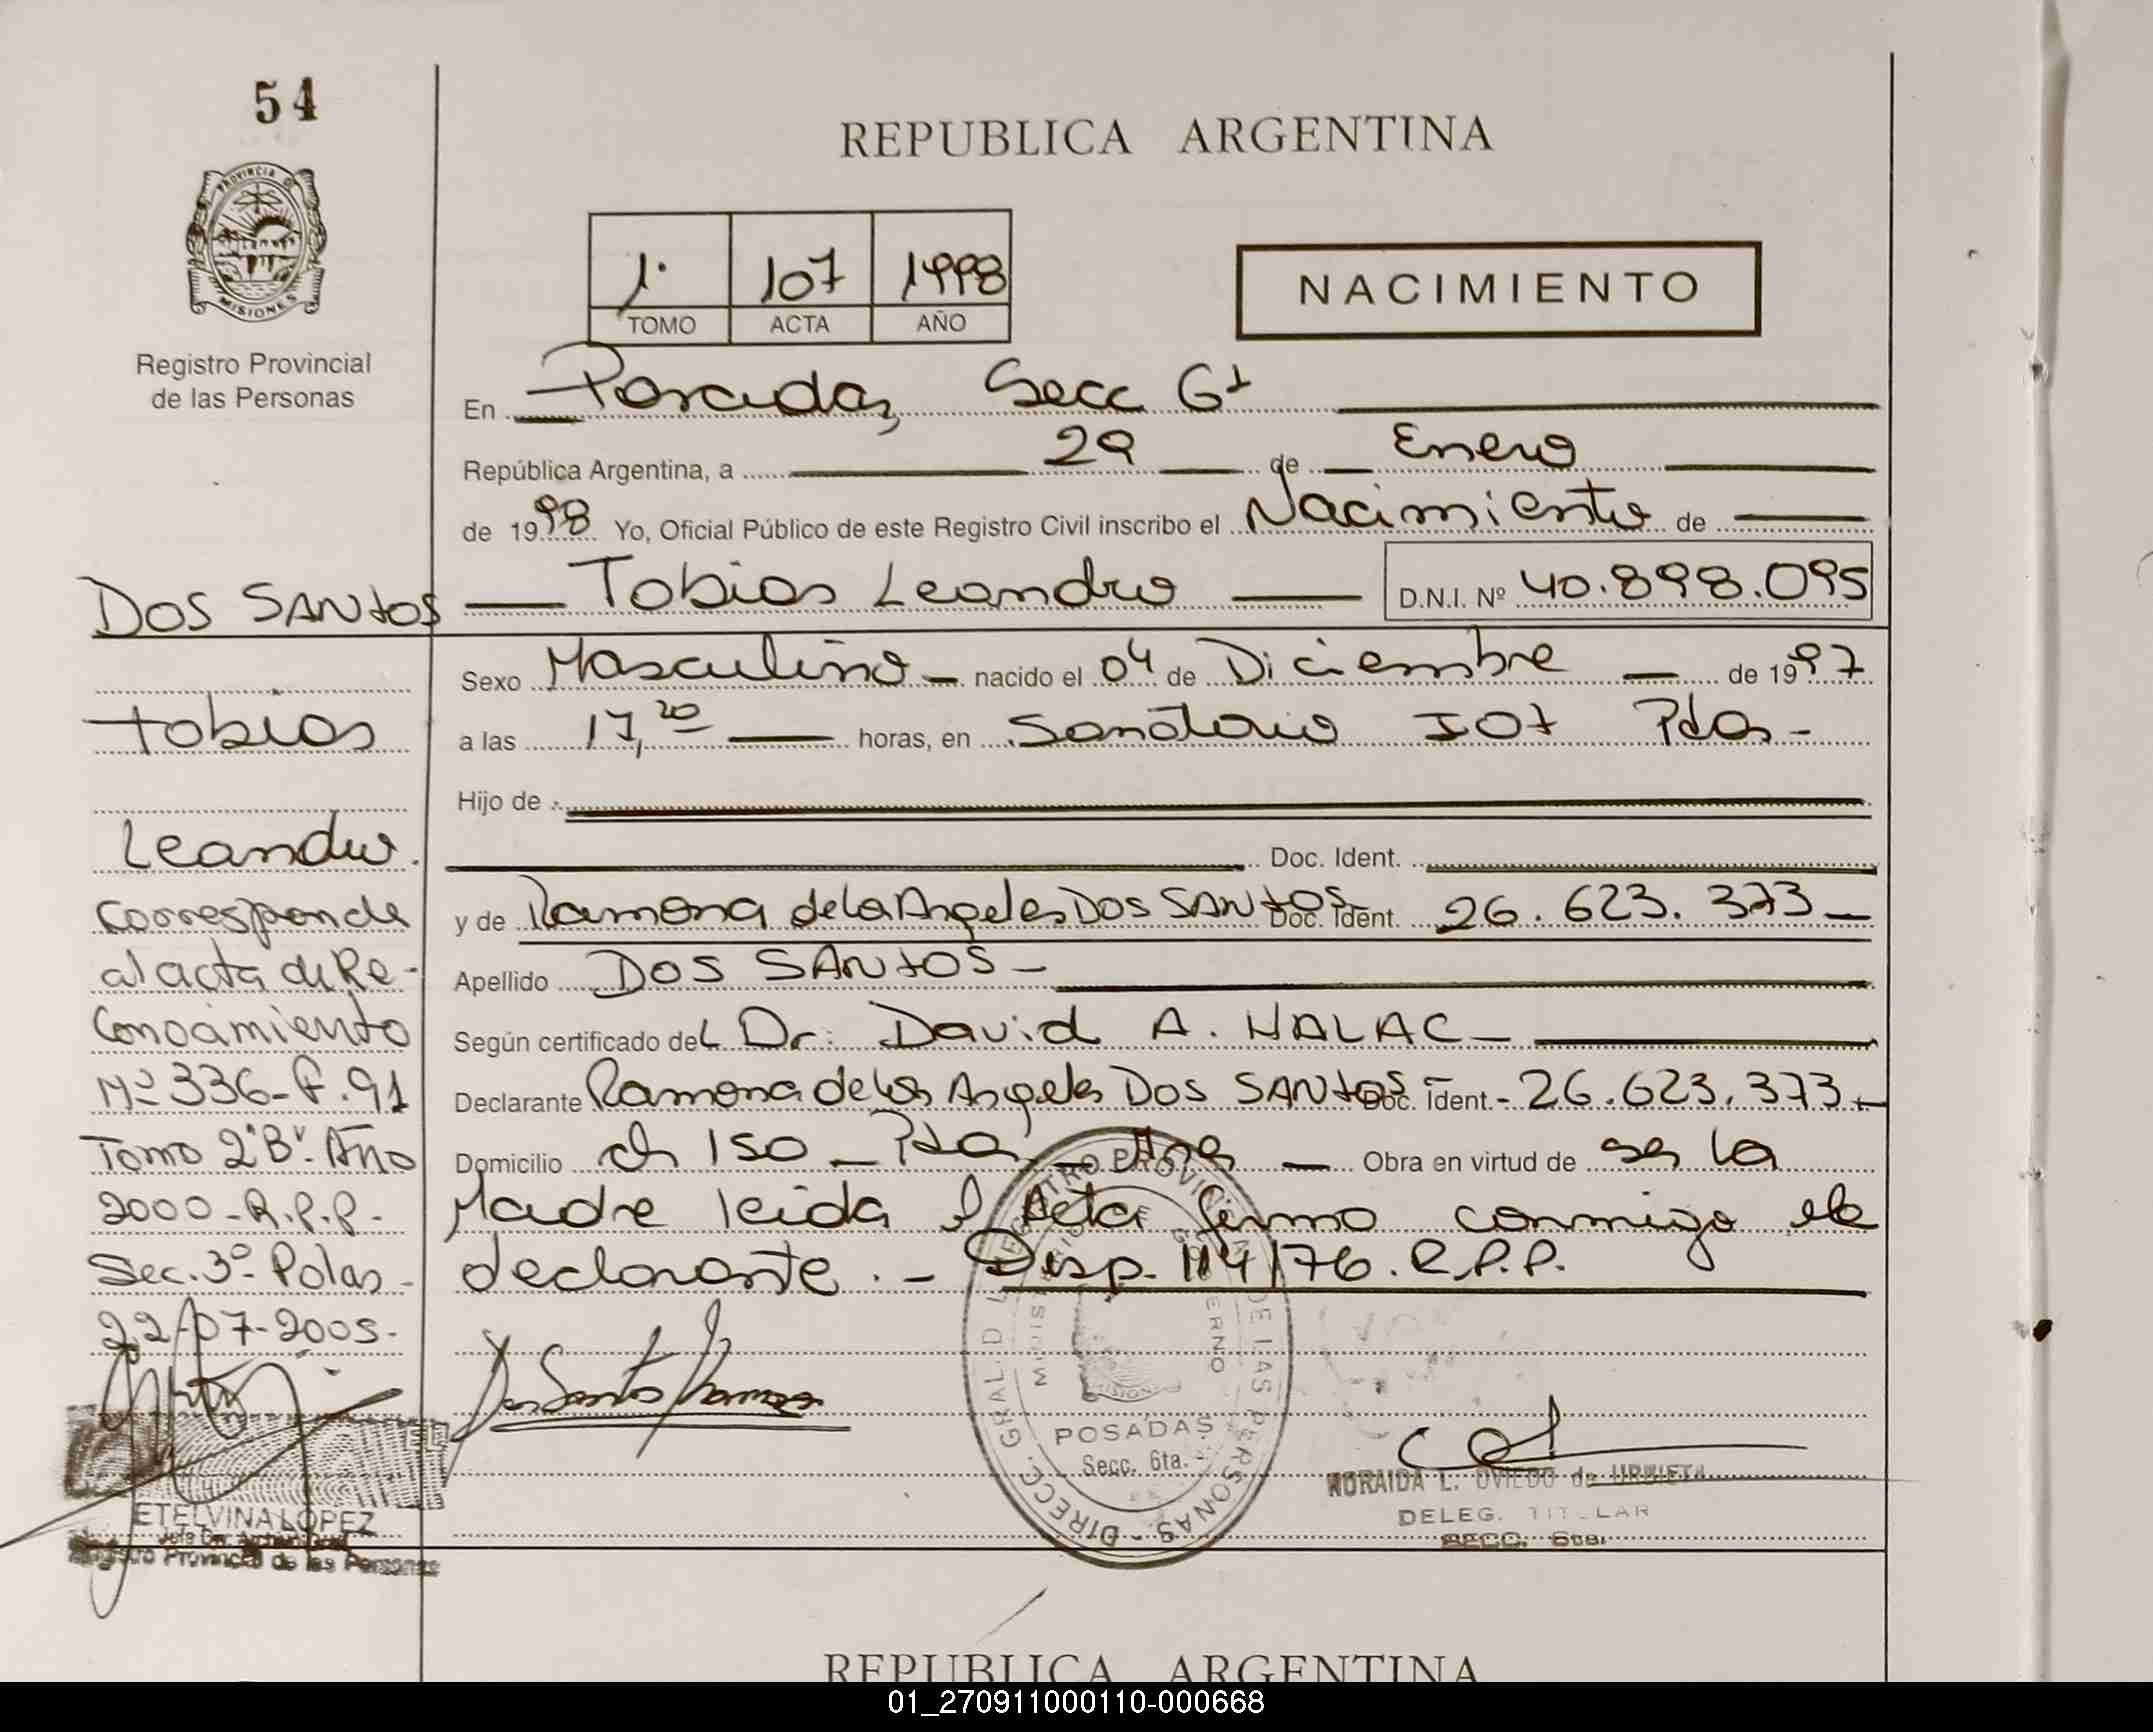 54
REPUBLICA ARGENTINA
PROVINCIA D
MISIONES
Registro Provincial
de las Personas
1º 107 1998
TOMO ACTA AÑO
NACIMIENTO
En Posadas, Secc 6ª
República Argentina, a 29 de Enero
de 1998 Yo, Oficial Público de este Registro Civil inscribo el Nacimiento de
DOS SANtOS Tobias Leandro D.N.I. Nº 40.898.095
Sexo Masculino nacido el 04 de Diciembre de 1997
a las 17,20 horas, en Sanatorio IOT Pdas-
Hijo de
Doc. Ident.
y de Ramona de los Angeles DOS SANtOS Doc. Ident. 26.623.373
Apellido DOS SANtOS
Según certificado del Dr. David A. HALAC
Declarante Ramona de los Angeles DOS SANtOS Doc. Ident. 26.623.373
Domicilio ch 150 - Pdas - Mnes Obra en virtud de ser la
Madre leida el Acta firma conmigo la
declarante. - Disp. 114/76. R.P.P.
tobias
Leandro.
Corresponde
al acta de Re-
Conocimiento
Nº 336-F.91
Tomo 2"B". Año
2000-R.P.P-
Sec. 3º- Pdas-
22-07-2005-
ETELVINA LOPEZ
Registro Provincial de las Personas
Dos Santos Ramona
DIRECC. GRAL. D REGISTRO PROVINCIAL DE LAS PERSONAS
POSADAS
Secc. 6ta.
NORAIDA L. OVIEDO de URBIETA
DELEG. TITULAR
SECC. 6ta.
REPUBLICA ARGENTINA
01_270911000110-000668